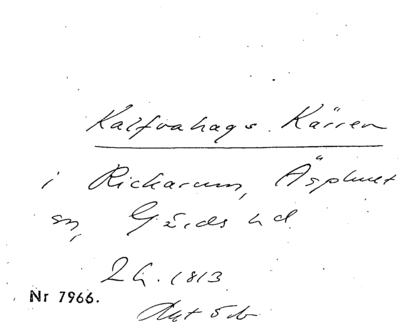 Kalfvahags Kärren
i Rickarum, Äsphult
sn, Gärds hd.
Lh. 1813
Nr 7966.